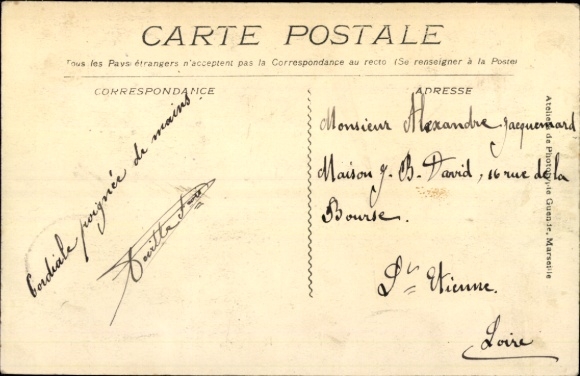 CARTE POSTALE
Tous les Pays étrangers n'acceptent pas la Correspondance au recto (Se renseigner à la Poste)
CORRESPONDANCE
Cordiale poignée de mains.
ADRESSE
Monsieur Alexandre Jacquemard
Maison J-B-David, 16 rue de la
Bourse.
St Etienne.
Loire
Ateliers de Phototypie Guende, Marseille